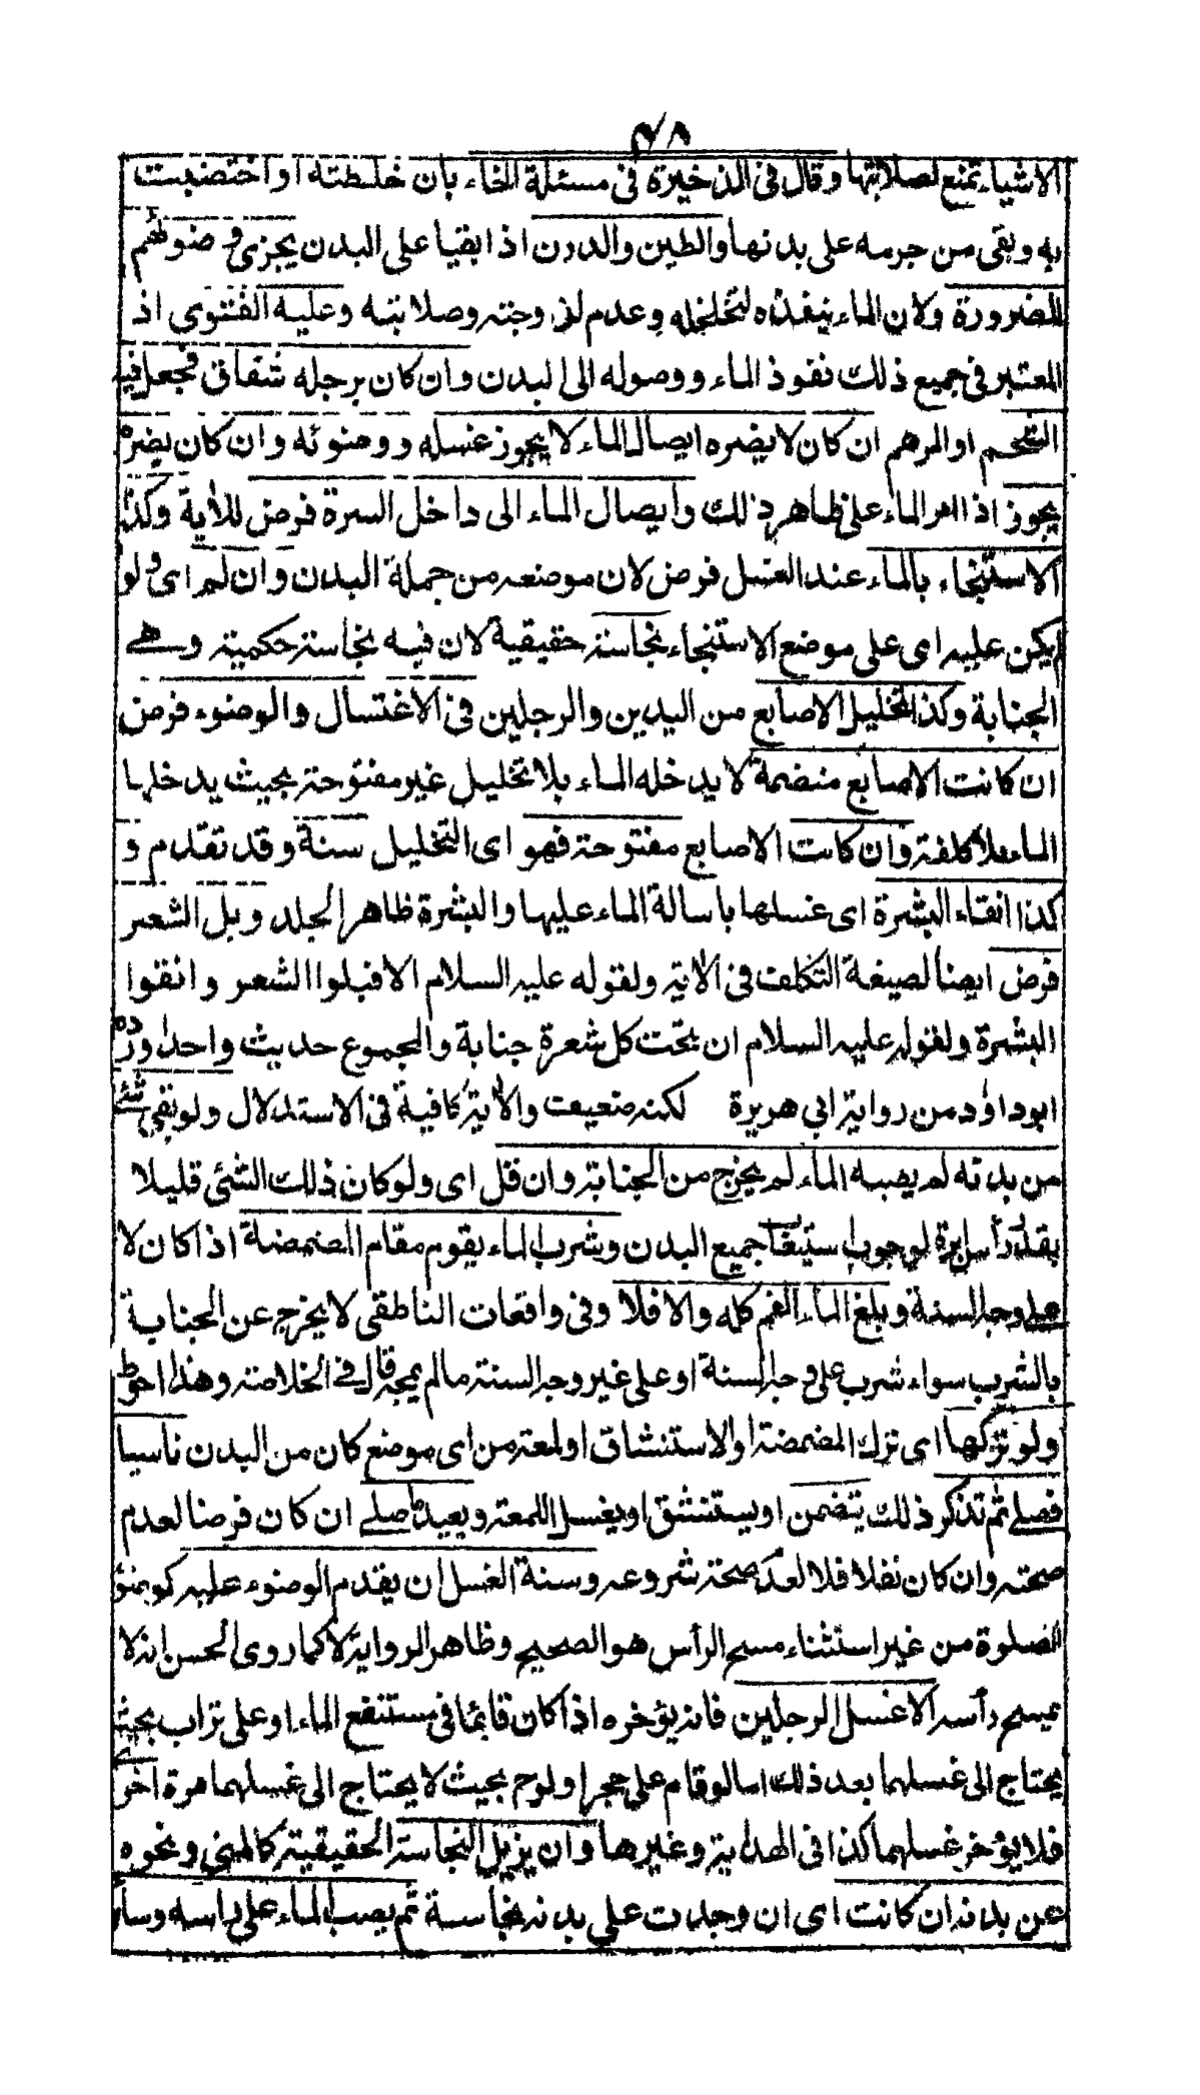 ٤٨
الاشياء تمنع لصلابتها وقال فى الذخيرة فى مسئلة الحناء بان خلطته او اختضبت
به وبقى من جرمه على بدنها والطين والدرن اذا بقيا على البدن يجزى وضوئهم
للضرورة ولان الماء ينفذه لتخلخله وعدم لزوجته وصلابته وعليه الفتوى اذ
المعتبر فى جميع ذلك نفوذ الماء ووصوله الى البدن وان كان برجله شقاق فجعل فيه
الشحم او المرهم ان كان لا يضره ايصال الماء لا يجوز غسله ووضوئه وان كان يضره
يجوز اذا امر الماء على ظاهر ذلك وايصال الماء الى داخل السرة فرض للأية وكذا
الاستنجاء بالماء عند الغسل فرض لان موضعه من جملة البدن وان لم اى ولو
لم يكن عليه اى على موضع الاستنجاء نجاسة حقيقية لان فيه نجاسة حكمية وهى
الجنابة وكذا تخليل الاصابع من اليدين والرجلين فى الاغتسال والوضوء فرض
ان كانت الاصابع منضمة لا يدخله الماء بلا تخليل غير مفتوحة بحيث يدخلها
الماء بلا كلفة وان كانت الاصابع مفتوحة فهو اى التخليل سنة وقد تقدم و
كذا انقاء البشرة اى غسلها باسالة الماء عليها والبشرة ظاهر الجلد وبل الشعر
فرض ايضا لصيغة التكلف فى الاية ولقوله عليه السلام الا فبلوا الشعر وانقوا
البشرة ولقوله عليه السلام ان تحت كل شعرة جنابة والمجموع حديث واحد ورده
ابو داؤد من رواية ابي هريرة لكنه ضعيف والأية كافية فى الاستدلال ولو بقى شئ
من بدنه لم يصبه الماء لم يخرج من الجنابة وان قل اى ولو كان ذلك الشئ قليلا
بقدر رأس ابرة لوجوب استيعاب جميع البدن وشرب الماء يقوم مقام المضمضة اذا كان لا
على وجه السنة وبلغ الماء الفم كله والا فلا وفى واقعات الناطقى لا يخرج عن الجنابة
بالشرب سواء شرب على وجه السنة او على غير وجه السنة مالم يمجه قال فى الخلاصة وهذا احوط
ولو تركها اى ترك المضمضة او الاستنشاق او لمعة من اى موضع كان من البدن ناسيا
فصلى ثم تذكر ذلك يتمضمض او يستنشق او يغسل اللمعة ويعيد ما صلى ان كان فرضا لعدم
صحته وان كان نفلا فلا لعدم صحة شروعه وسنة الغسل ان يقدم الوضوء عليه كوضوء
الصلوة من غير استثناء مسح الرأس هو الصحيح وظاهر الرواية لا كما روى الحسن انه لا
يمسح رأسه الا غسل الرجلين فانه يؤخره اذا كان قائما فى مستنقع الماء او على تراب بحيث
يحتاج الى غسلهما بعد ذلك اما لو قام على حجر او لوح بحيث لا يحتاج الى غسلهما مرة اخرى
فلا يؤخر غسلهما كذا فى الهداية وغيرها وان يزيل النجاسة الحقيقية كالمنى ونحوه
عن بدنه ان كانت اى ان وجدت على بدنه نجاسة ثم يصب الماء على رأسه وسائر